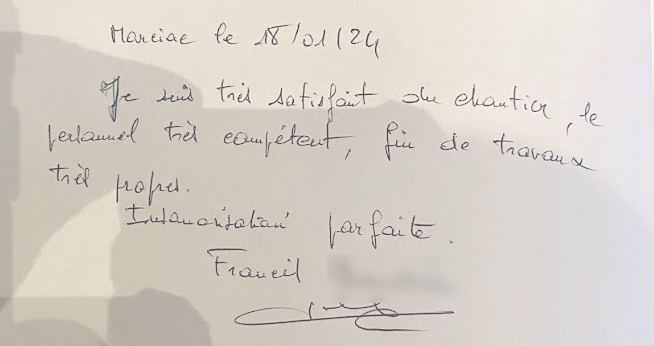 Marciac le 18/01/24
Je suis très satisfait du chantier, le
personnel très compétent, fin de travaux
très propres.
Insonorisation parfaite.
Francis